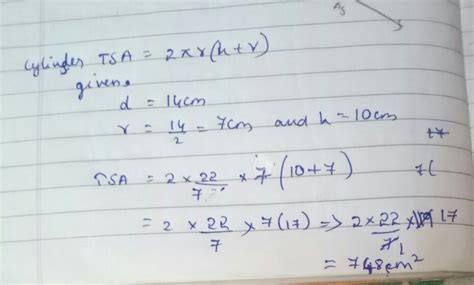 Cylinder TSA = 2πr(h+r)
given.
d = 14cm
r = 14/2 = 7cm and h = 10cm
TSA = 2 × 22/7 × 7 (10+7)
7(
= 2 × 22/7 × 7(17) => 2 × 22/7 × 17
1
= 748cm²